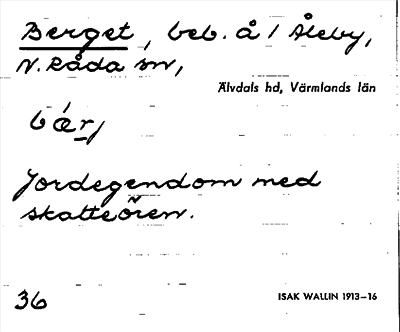 Berget, beb. å 1 Åleby,
N. Råda sn,
Älvdals hd, Värmlands län
bǽrj
Jordegendom med
skatteören.
36
ISAK WALLIN 1913–16